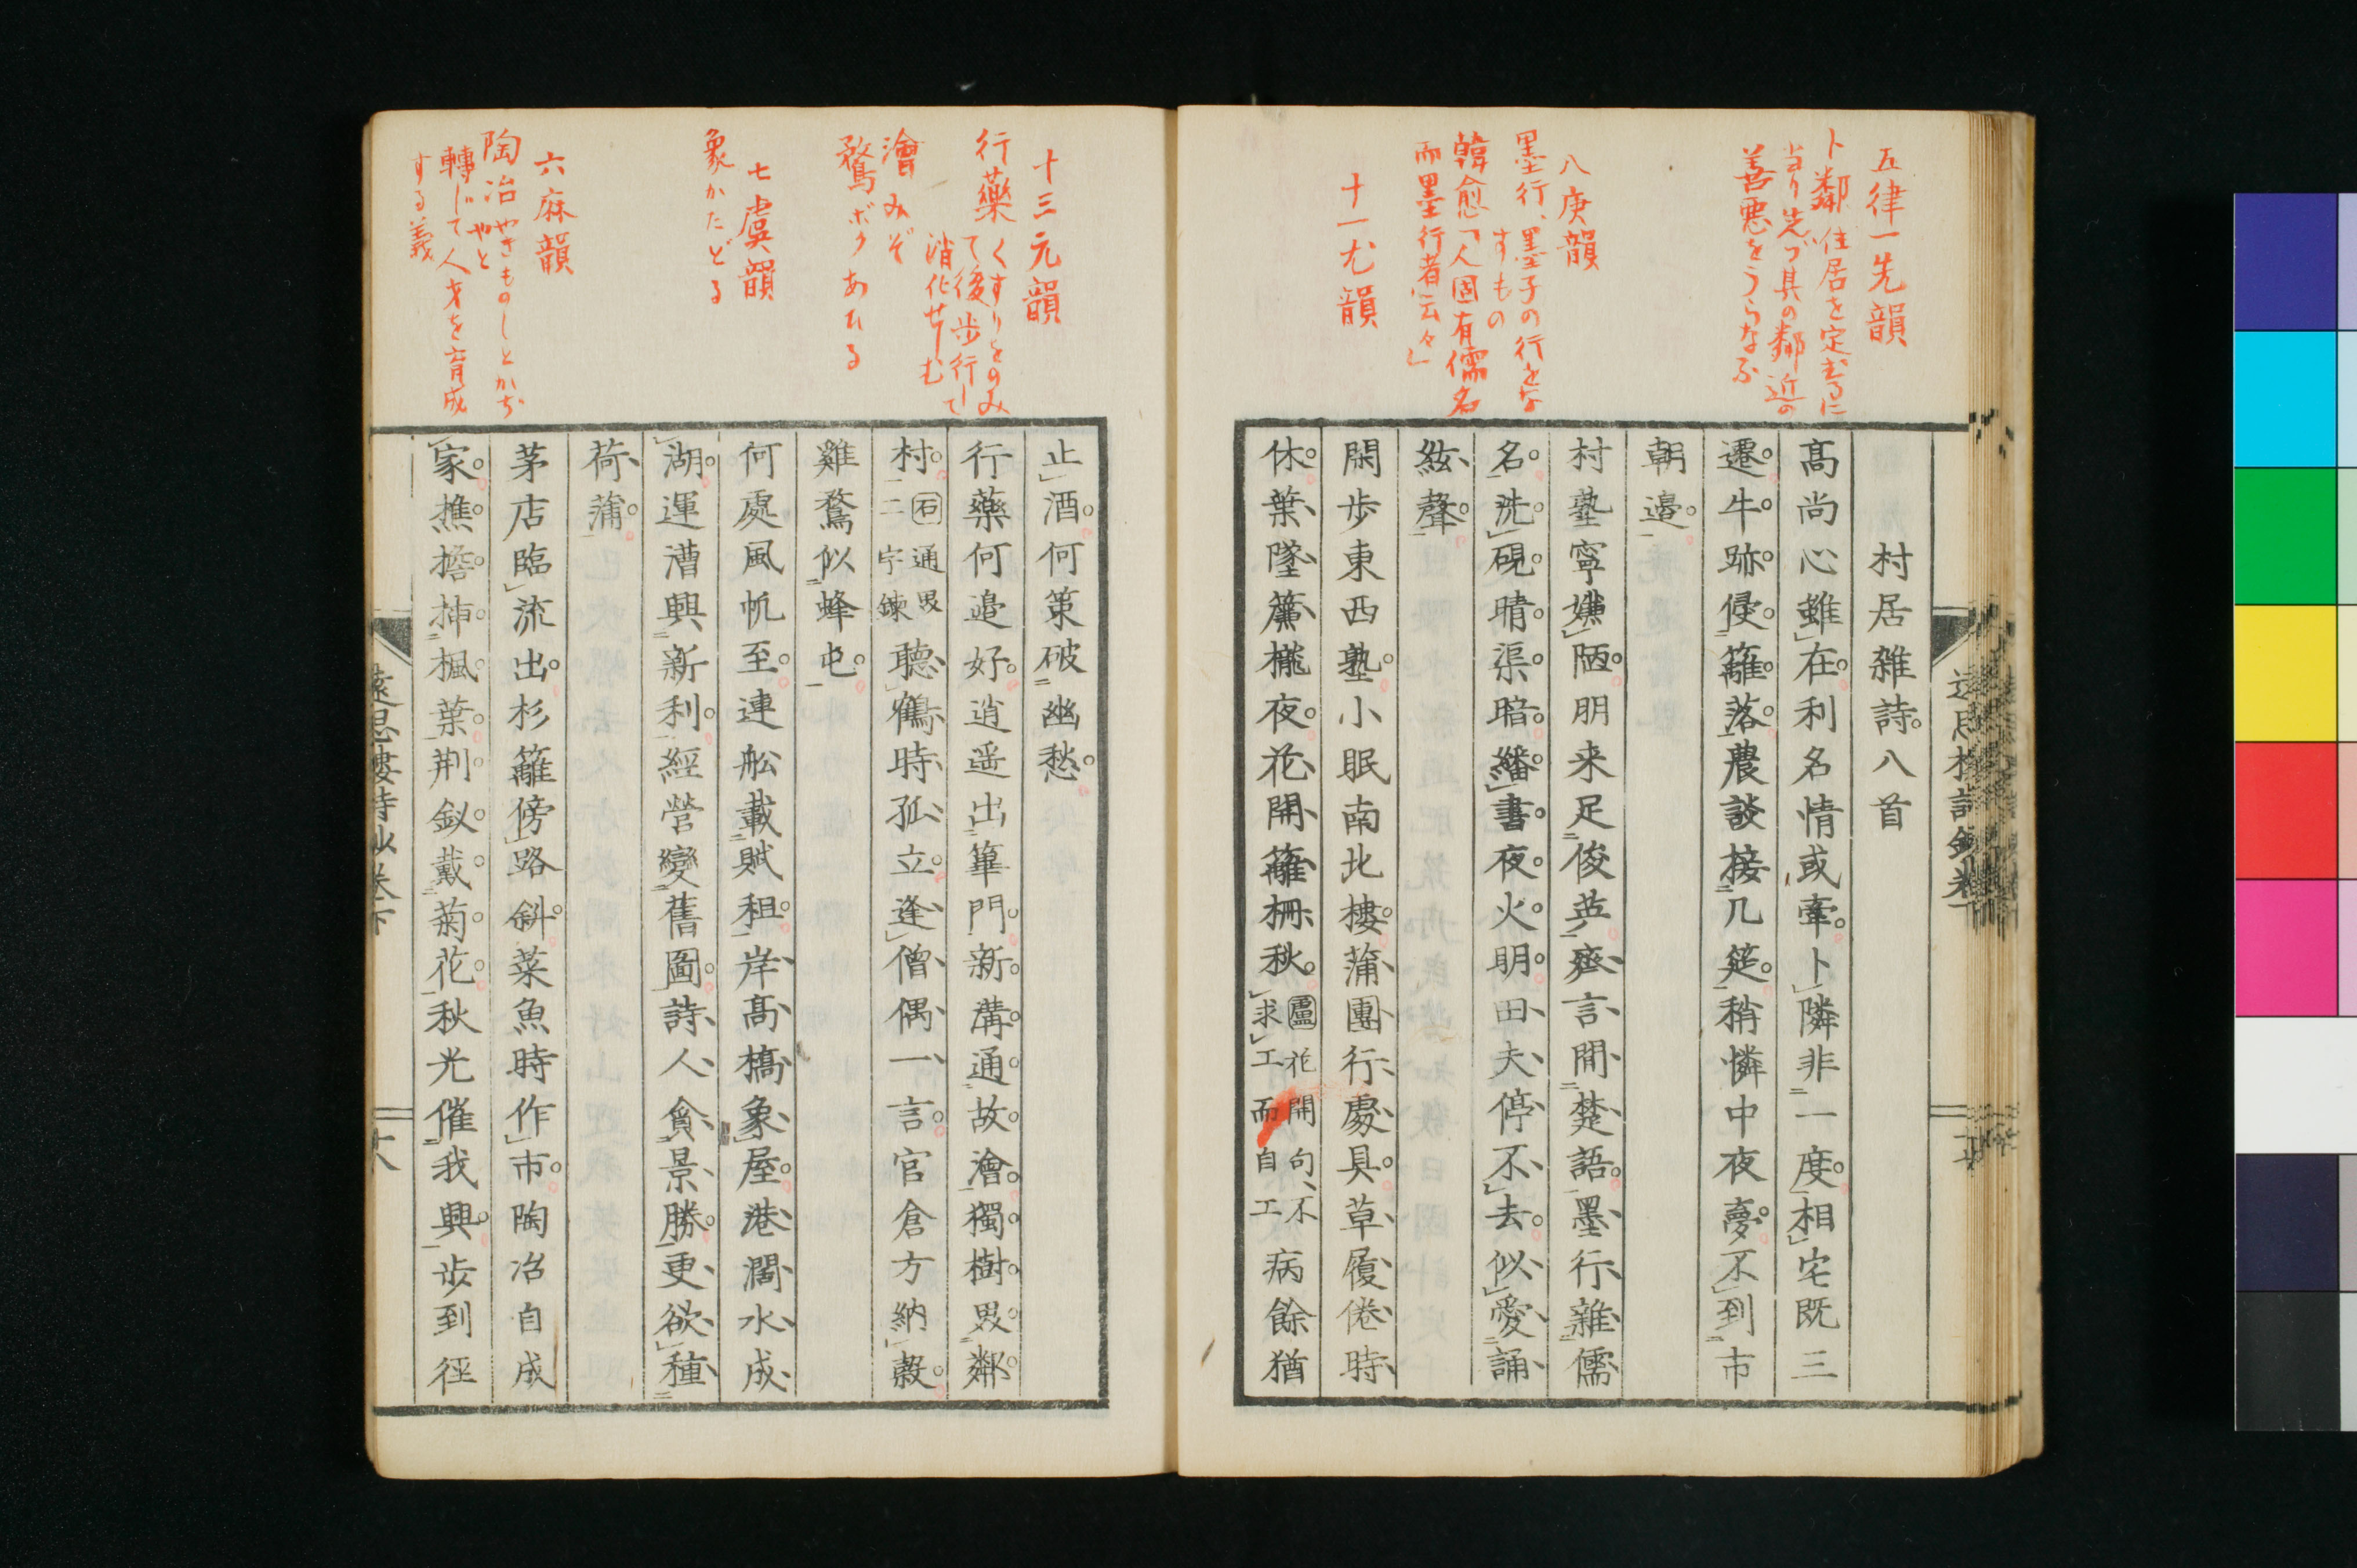 五律一先韻
卜鄰 住居を定むるに
当り先づ其の鄰近の
善悪をうらなふ
八庚韻
墨行、墨子の行をな
すもの
韓愈「人固有儒名
而墨行者云々」
十一尤韻
村居雜詩八首
高尚心雖在利名情或牽卜隣非一度相宅既三
遷牛跡侵籬落農談接几筵稍憐中夜夢不到市
朝邉
村塾寧嫌陋朋来足俊英齊言間楚語墨行雜儒
名洗硯晴渠暗繙書夜火明田夫停不去似愛誦
絃聲
閑歩東西塾小眠南北樓蒲團行處具草履倦時
休葉墜簾櫳夜花開籬柵秋
蘆花開句、不
求工而自工
病餘猶
十三元韻
行藥 くすりをのみ
て後歩行して
消化せしむ
澮 みぞ
鶩 ボク あひる
七虞韻
象 かたどる
六麻韻
陶冶 やきものしとかぢ
やと
轉じて人才を育成
する義
止酒何策破幽愁
行藥何邉好逍遥出篳門新溝通故澮獨樹界鄰
村
石通界
二字鍊
聽鶴時孤立逢僧偶一言官倉方納穀
雞鶩似蜂屯
何處風帆至連舩載賦租岸高橋象屋港濶水成
湖運漕興新利經營變舊圖詩人貪景勝更欲種
荷蒲
茅店臨流出杉籬傍路斜菜魚時作市陶冶自成
家樵擔挿楓葉荆釵戴菊花秋光催我興歩到径
遠思樓詩鈔卷下